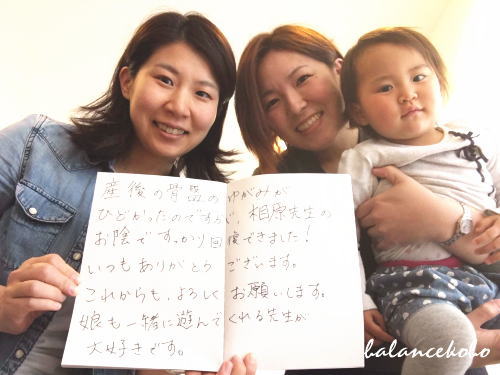 産後の骨盤のゆがみが
ひどかったのですが、相原先生の
お陰ですっかり回復できました!
いつもありがとうございます。
これからも、よろしくお願いします。
娘も一緒に遊んでくれる先生が
大好きです。
balancekobo